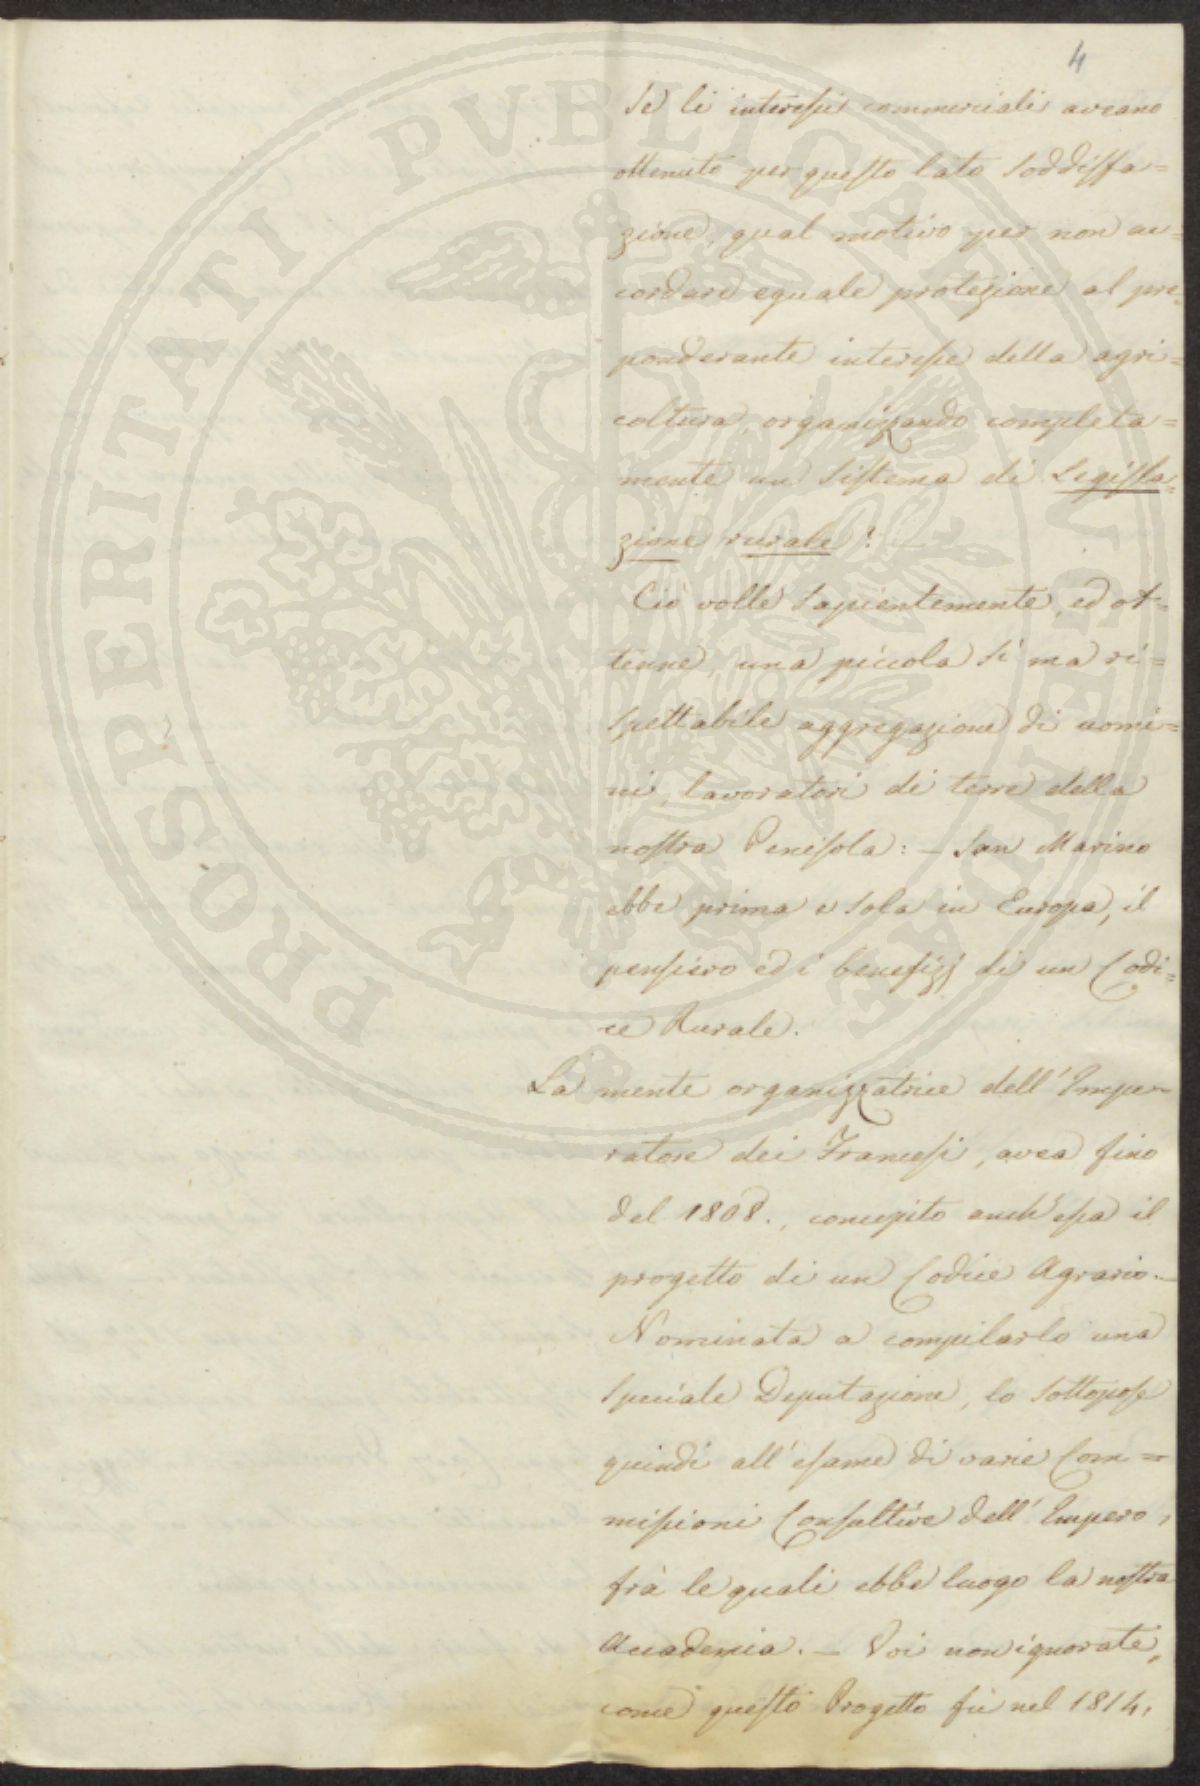 4
Se li interessi commerciali aveano
ottenuto per questo lato soddisfa=
zione, qual motivo per non ac=
cordare eguale protezione al pre=
ponderante interesse della agri=
coltura, organizzando completa=
mente un sistema di Legisla=
zione rurale? —
Ciò volle sapientemente, ed ot=
tenne, una piccola sì ma ri=
spettabile aggregazione di uomi=
ni, lavoratori di terre della
nostra Penisola: – San Marino
ebbe prima e sola in Europa, il
pensiero ed i benefizj di un Codi=
ce Rurale.
La mente organizzatrice dell'Impe=
ratore dei Francesi, avea fino
del 1808., concepito anch'essa il
progetto di un Codice Agrario. –
Nominata a compilarlo una
speciale Deputazione, lo sottopose
quindi all'esame di varie Com=
missioni Consultive dell'Impero,
frà le quali ebbe luogo la nostra
Accademia. – Voi non ignorate,
come questo Progetto fù nel 1814,
PROSPERITATI PUBLICAE AUGENDAE